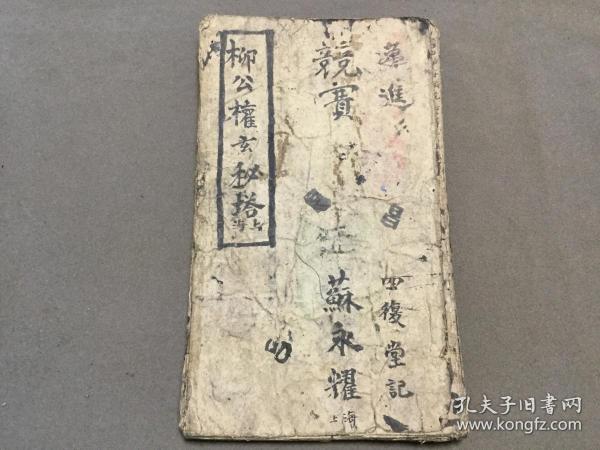 進
昌
四復堂記
競賽
蘇永耀
上海
柳公權玄秘塔
上海
孔夫子旧书网
www.kongfz.com